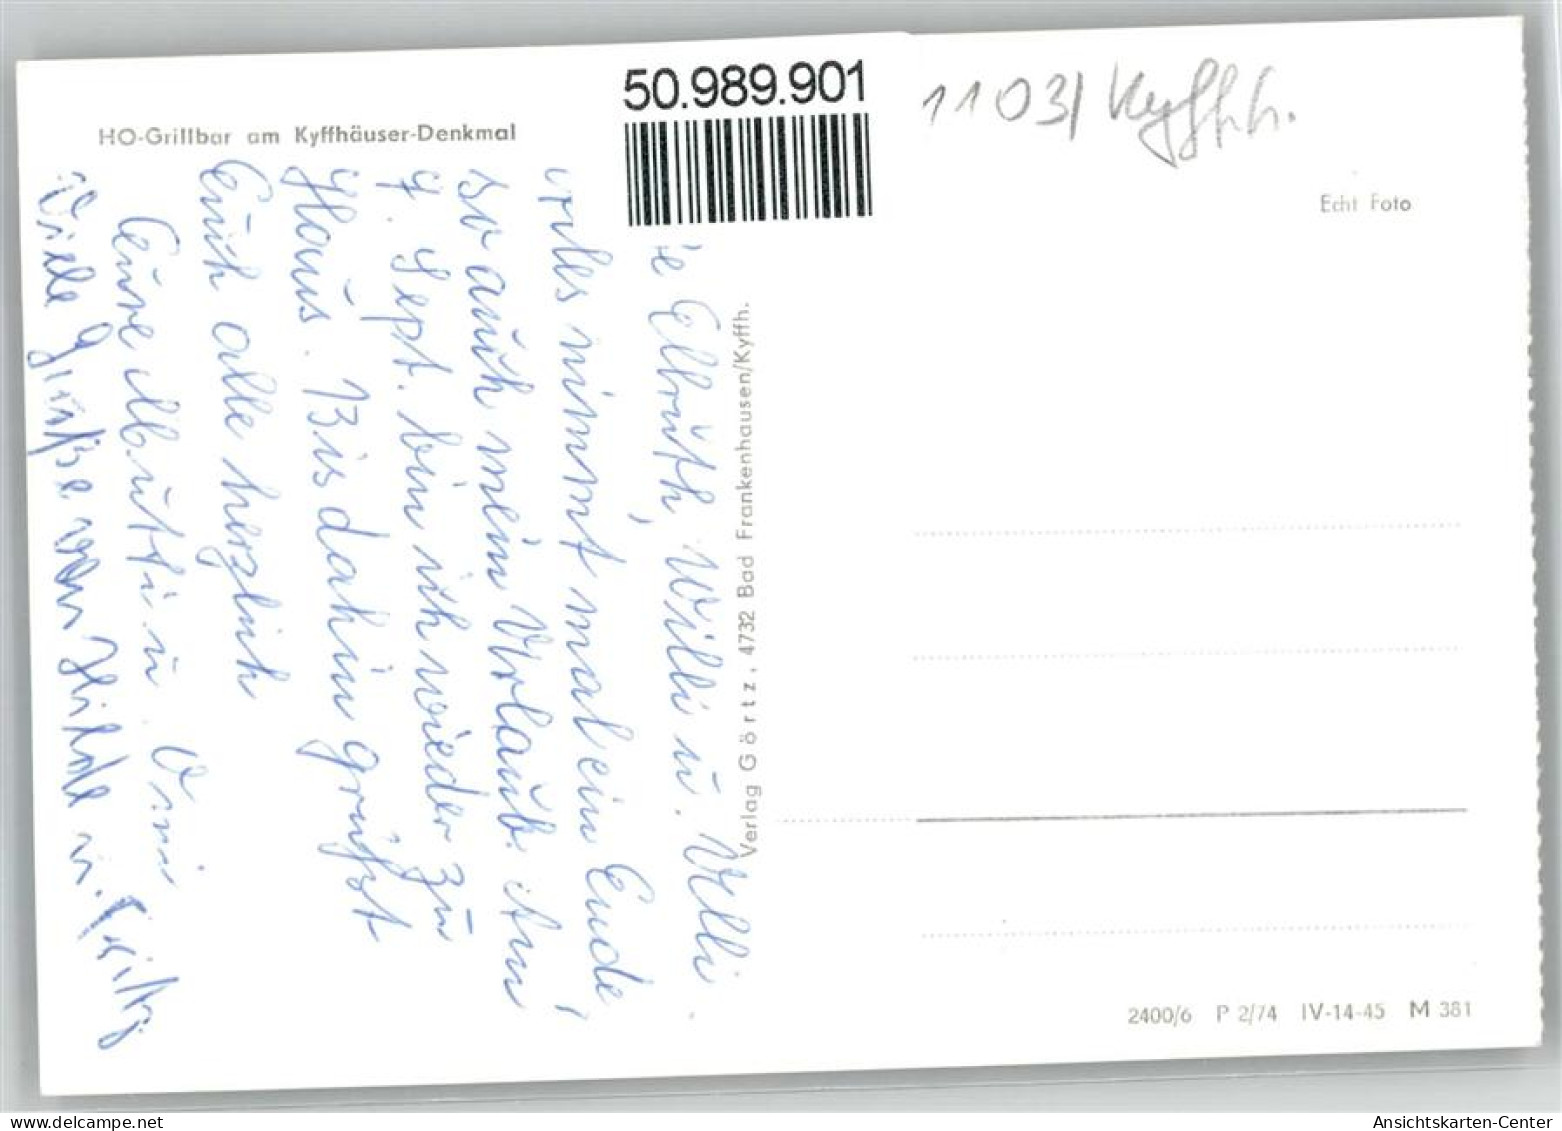 HO-Grillbar am Kyffhäuser-Denkmal
50.989.901
11031 Kyffh.
Echt Foto
Elbruth, Willi u. Ulli.
alles nimmt mal ein Ende,
so auch mein Urlaub. Am
7. Sept. bin ich wieder zu
Haus. Bis dahin grüßt
Euch alle herzlich
Eure Mutti u. Omi
Viele Grüße von Hilde u.
Verlag Görtz, 4732 Bad Frankenhausen/Kyffh.
2400/6 P 2/74 IV-14-45 M 381
www.delcampe.net
bartko-reher
Ansichtskarten-Center